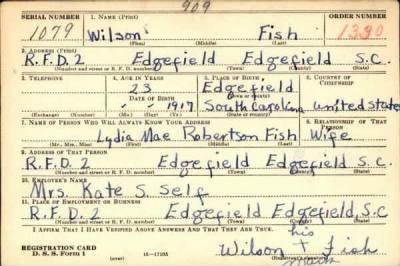 909
SERIAL NUMBER 1. NAME (Print) ORDER NUMBER
1079 Wilson Fish 1330
(First) (Middle) (Last)
2. ADDRESS (Print)
R.F.D.2 Edgefield Edgefield S.C.
(Number and street or R. F. D. number) (Town) (County) (State)
3. TELEPHONE 4. AGE IN YEARS 5. PLACE OF BIRTH 6. COUNTRY OF CITIZENSHIP
23 Edgefield
(Town or county)
DATE OF BIRTH
1917 South Carolina United State
(Exchange) (Number) (Mo.) (Day) (Yr.) (State or country)
7. NAME OF PERSON WHO WILL ALWAYS KNOW YOUR ADDRESS 8. RELATIONSHIP OF THAT PERSON
Lydia Mae Robertson Fish Wife
(Mr., Mrs., Miss) (First) (Middle) (Last)
9. ADDRESS OF THAT PERSON
R.F.D. 2 Edgefield Edgefield S.C.
(Number and street or R. F. D. number) (Town) (County) (State)
10. EMPLOYER'S NAME
Mrs. Kate S. Self
11. PLACE OF EMPLOYMENT OR BUSINESS
R.F.D. 2 Edgefield Edgefield, S.C
(Number and street or R. F. D. number) (Town) (County) (State)
I AFFIRM THAT I HAVE VERIFIED ABOVE ANSWERS AND THAT THEY ARE TRUE.
his
REGISTRATION CARD Wilson + Fish
D. S. S. Form 1 16—17105 mark